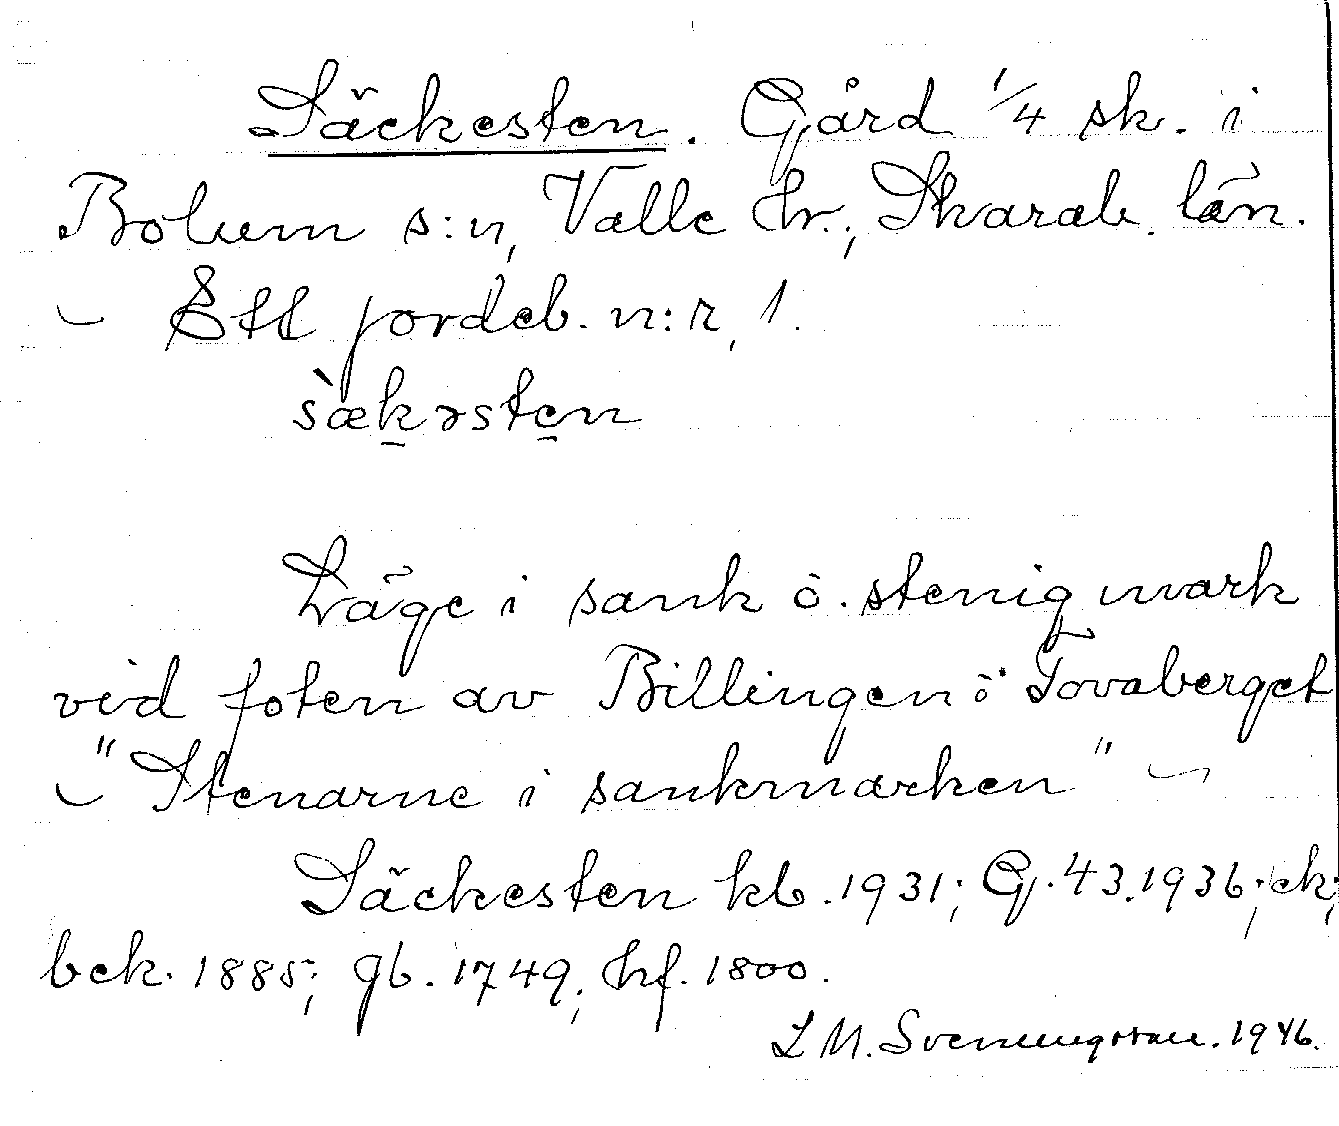 Säckesten. Gård 1/4 sk. i
Bolum s:n, Valle hr., Skarab. län.
– Ett jordeb. n:r, 1.
sækəsten
Läge i sank o. stenig mark
vid foten av Billingen o Tovaberget
– "Stenarne i sankmarken" –
Säckesten kb. 1931; G. 43. 1936; ek;
bck. 1885; gb. 1749; hf. 1800.
L M. Svenungsson. 1946.